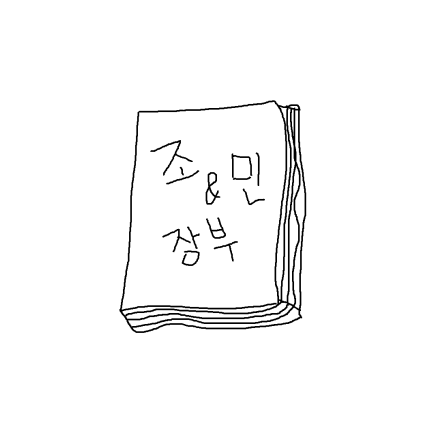 조&민
장부